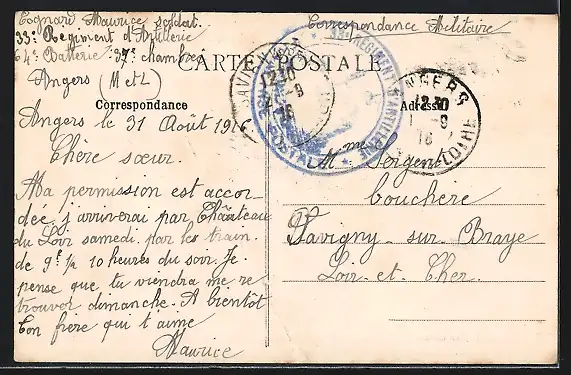 Cognard Maurice soldat.
33e Regiment d'Artillerie
64e Batterie. 37e chambrée
Angers (M et L)
Correspondance Militaire
CARTE POSTALE
Correspondance
Adresse
Angers le 31 Août 1916
Chère sœur.
Ma permission est accor-
dée j'arriverai par Château
du Loir samedi par les train.
de 9h ½ 10 heures du soir. Je
pense que tu viendra me re
trouver dimanche. A bientôt
Ton frère qui t'aime
Maurice
Mme Sergent
bouchère
Savigny-sur-Braye
Loir-et-Cher.
33e REGIMENT D'ARTILLERIE
POSTAL
SAVIGNY
12 30
-9
16
ANGERS
12 30
1 -9
16
LOIRE